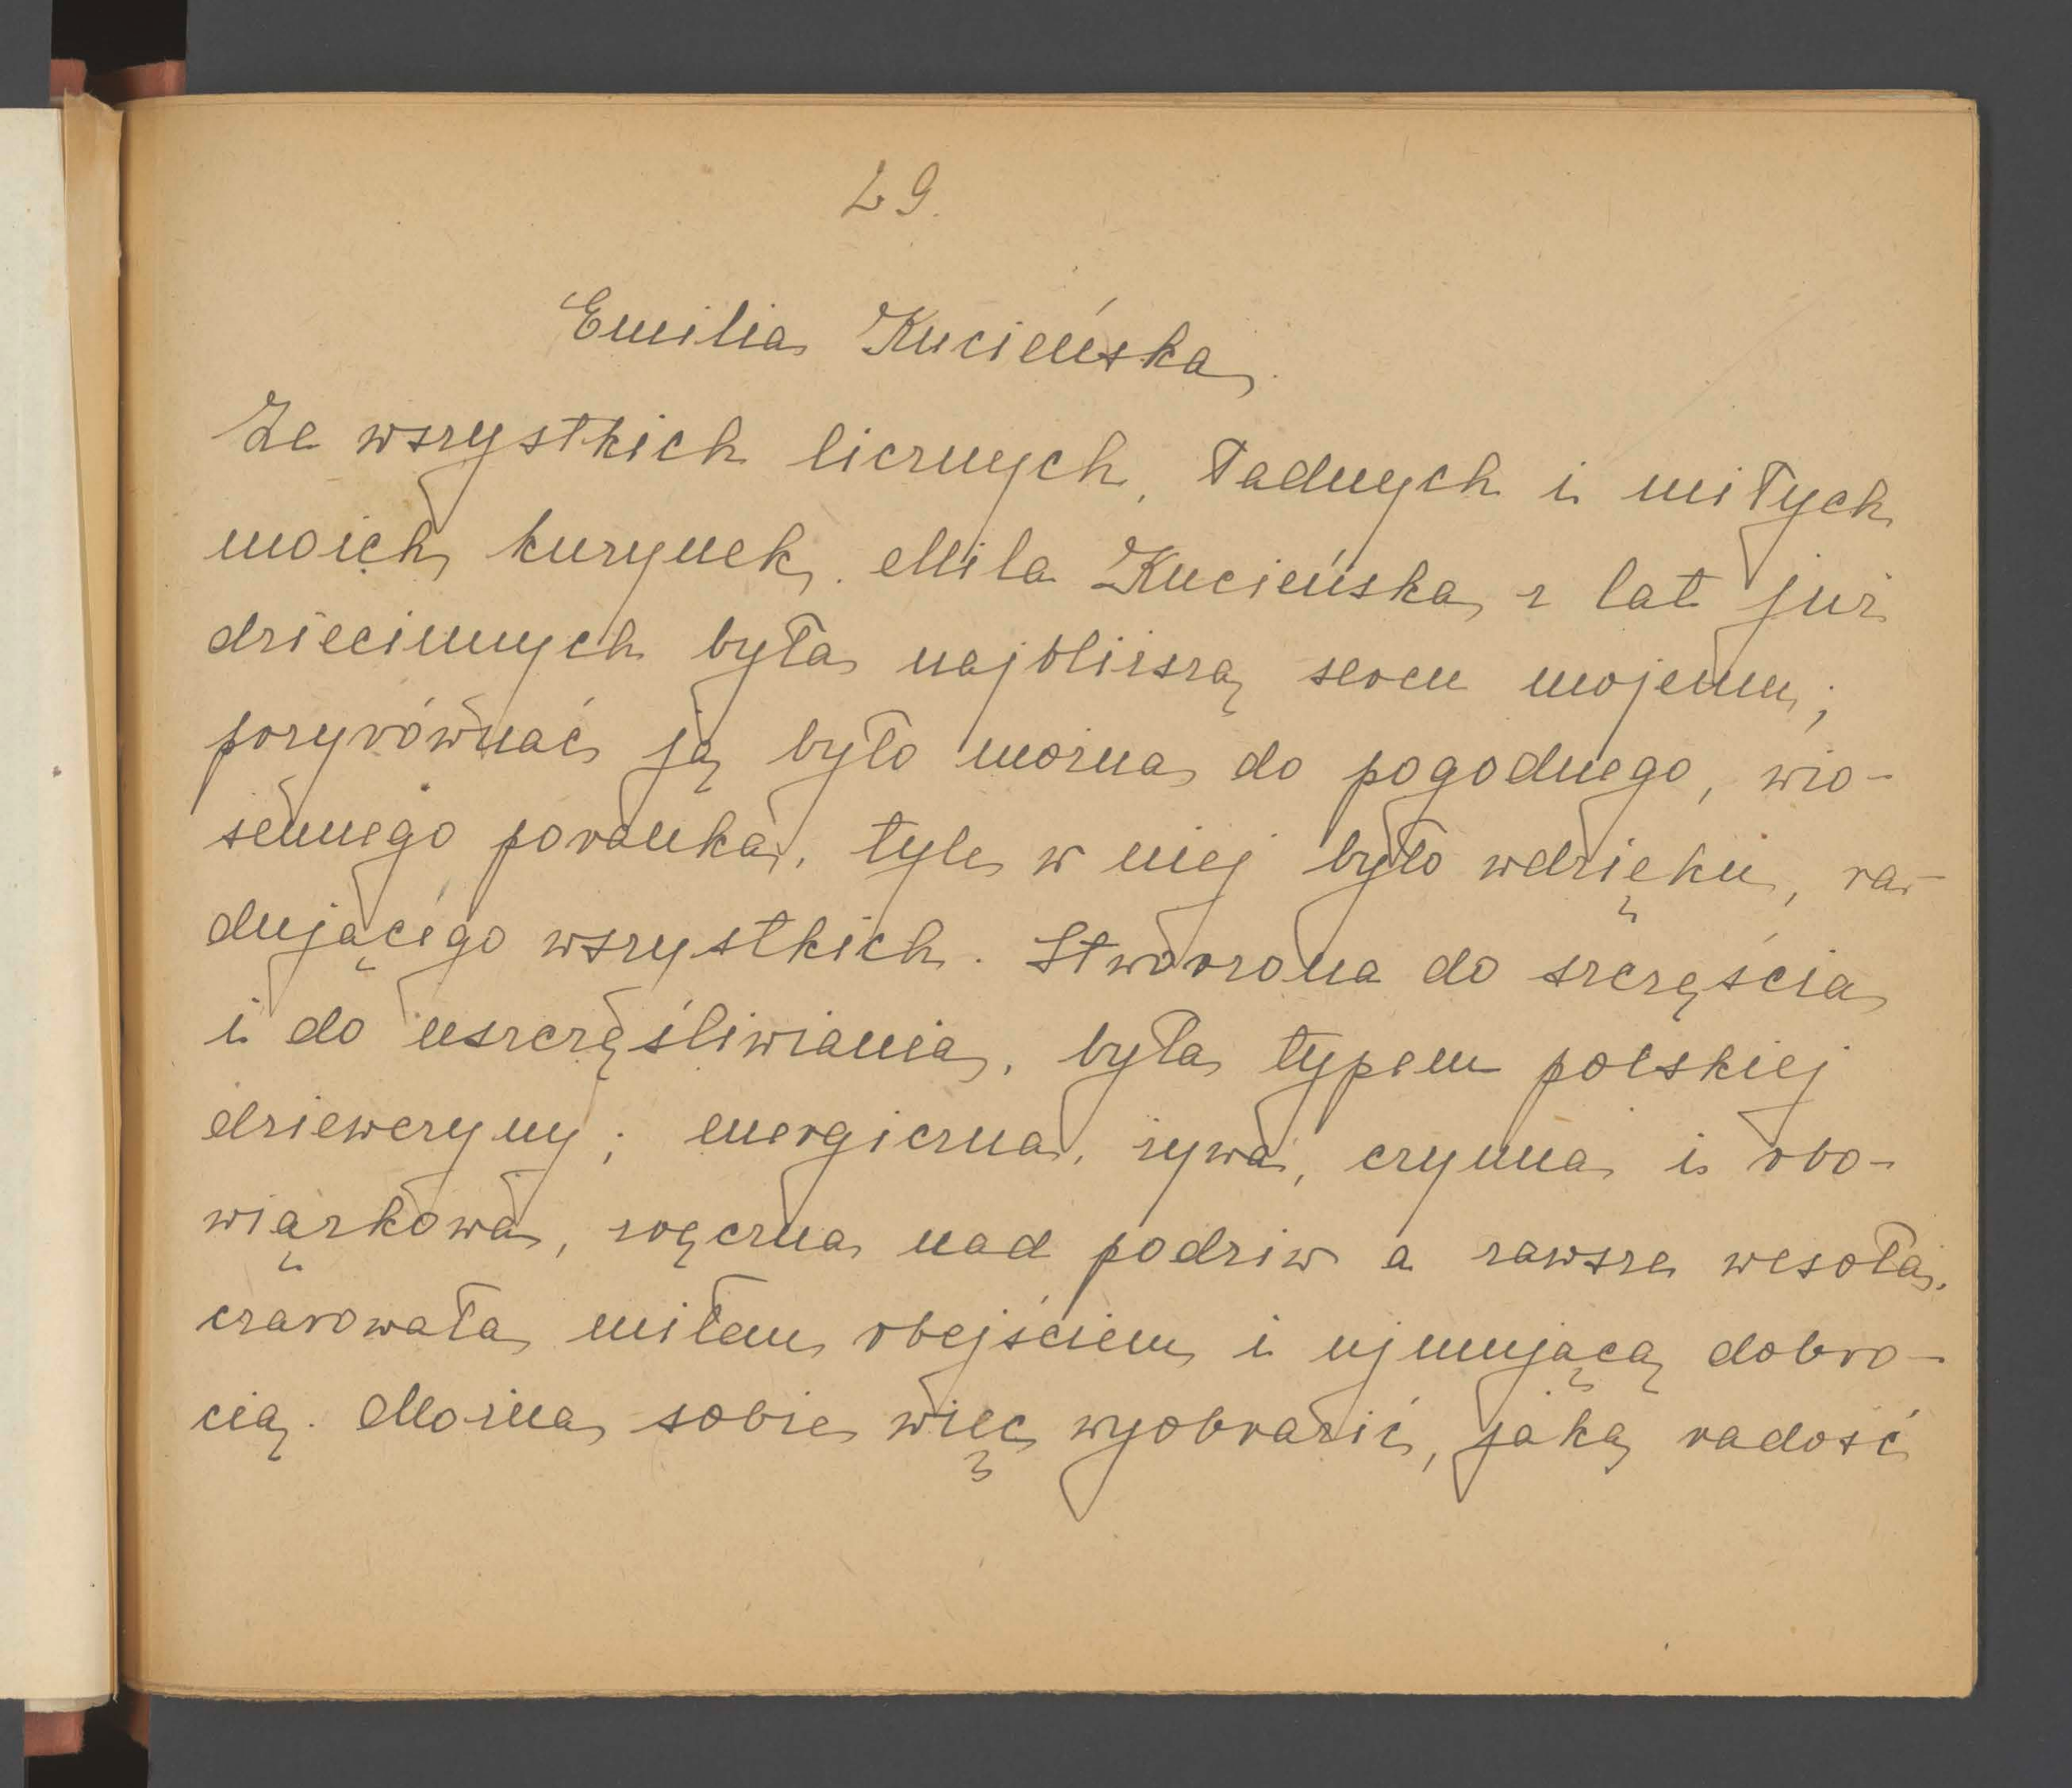 29.
Emilia Kucieńska.
Ze wszystkich licznych, ładnych i miłych
moich kuzynek, Mila Kucieńska, z lat już
dziecinnych była najbliższą sercu mojemu;
porzyrównać ją było można do pogodnego, wio-
sennego poranka, tyle w niej było wdzięku, ra-
dującego wszystkich. Stworzona do szczęścia
i do uszczęśliwiania, była typem polskiej
dziewczyny; energiczna, żywa, czynna i obo-
wiązkowa, zręczna nad podziw a zawsze wesoła,
czarowała miłem obejściem i ujmującą dobro-
cią. Można sobie więc wyobrazić, jaką radość